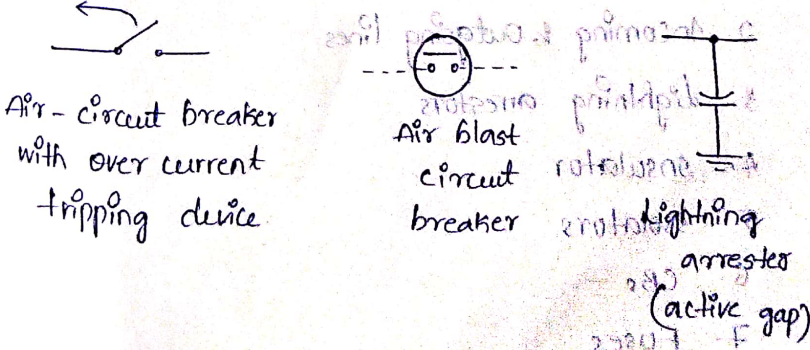 Air-circuit breaker
with over current
tripping device
Air blast
circuit
breaker
Lightning
arrester
(active gap)